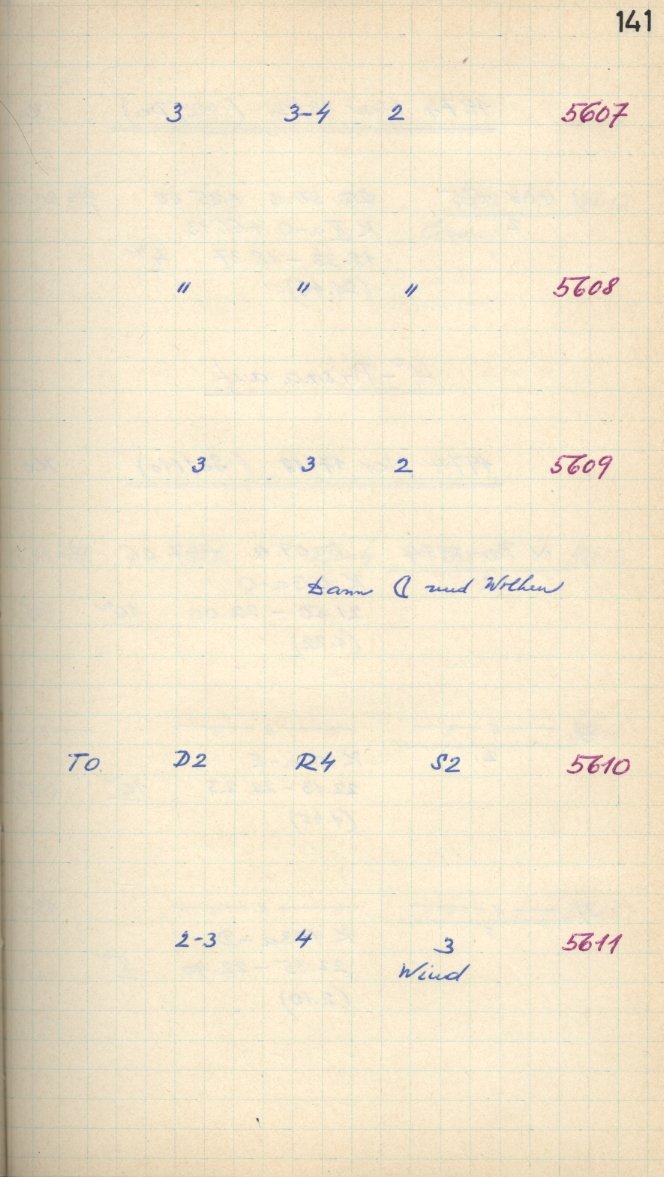 141
3 3-4 2 5607
" " " 5608
3 3 2 5609
Dann ☾ und Wolken
TO D2 R4 S2 5610
2-3 4 3 5611
Wind